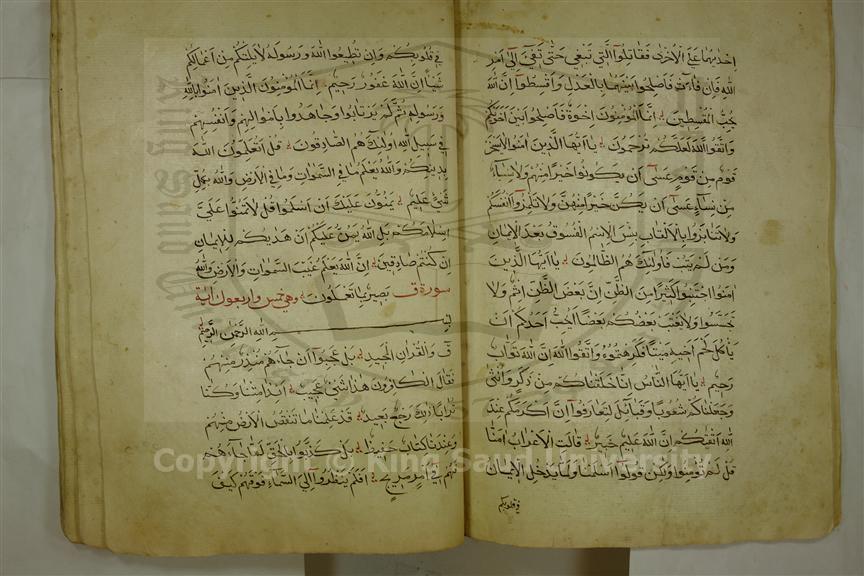 احداهما على الاخرى فقاتلوا التي تبغي حتى تفئ الى امر
الله فان فاءت فاصلحوا بينهما بالعدل واقسطوا ان الله
يحب المقسطين انما المؤمنون اخوة فاصلحوا بين اخويكم
واتقوا الله لعلكم ترحمون يا ايها الذين امنوا لا يسخر
قوم من قوم عسى ان يكونوا خيرا منهم ولا نساء
من نساء عسى ان يكن خيرا منهن ولا تلمزوا انفسكم
ولا تنابزوا بالالقاب بئس الاسم الفسوق بعد الايمان
ومن لم يتب فاولئك هم الظالمون يا ايها الذين
امنوا اجتنبوا كثيرا من الظن ان بعض الظن اثم ولا
تجسسوا ولا يغتب بعضكم بعضا ايحب احدكم ان
ياكل لحم اخيه ميتا فكرهتموه واتقوا الله ان الله تواب
رحيم يا ايها الناس انا خلقناكم من ذكر وانثى
وجعلناكم شعوبا وقبائل لتعارفوا ان اكرمكم عند
الله اتقيكم ان الله عليم خبير قالت الاعراب امنا
قل لم تؤمنوا ولكن قولوا اسلمنا ولما يدخل الايمان
في قلوبكم
في قلوبكم وان تطيعوا الله ورسوله لا يلتكم من اعمالكم
شيئا ان الله غفور رحيم انما المؤمنون الذين امنوا بالله
ورسوله ثم لم يرتابوا وجاهدوا باموالهم وانفسهم
في سبيل الله اولئك هم الصادقون قل اتعلمون الله
بدينكم والله يعلم ما في السموات وما في الارض والله بكل
شئ عليم يمنون عليك ان اسلموا قل لا تمنوا علي
اسلامكم بل الله يمن عليكم ان هديكم للايمان
ان كنتم صادقين ان الله يعلم غيب السموات والارض والله
بصير بما تعملون سورة ق وهي خمس واربعون آية
بسم الله الرحمن الرحيم
ق والقران المجيد بل عجبوا ان جاءهم منذر منهم
فقال الكافرون هذا شئ عجيب ائذا متنا وكنا
ترابا ذلك رجع بعيد قد علمنا ما تنقص الارض منهم
وعندنا كتاب حفيظ بل كذبوا بالحق لما جاءهم
فهم في امر مريج افلم ينظروا الى السماء فوقهم كيف
Copyright © King Saud University